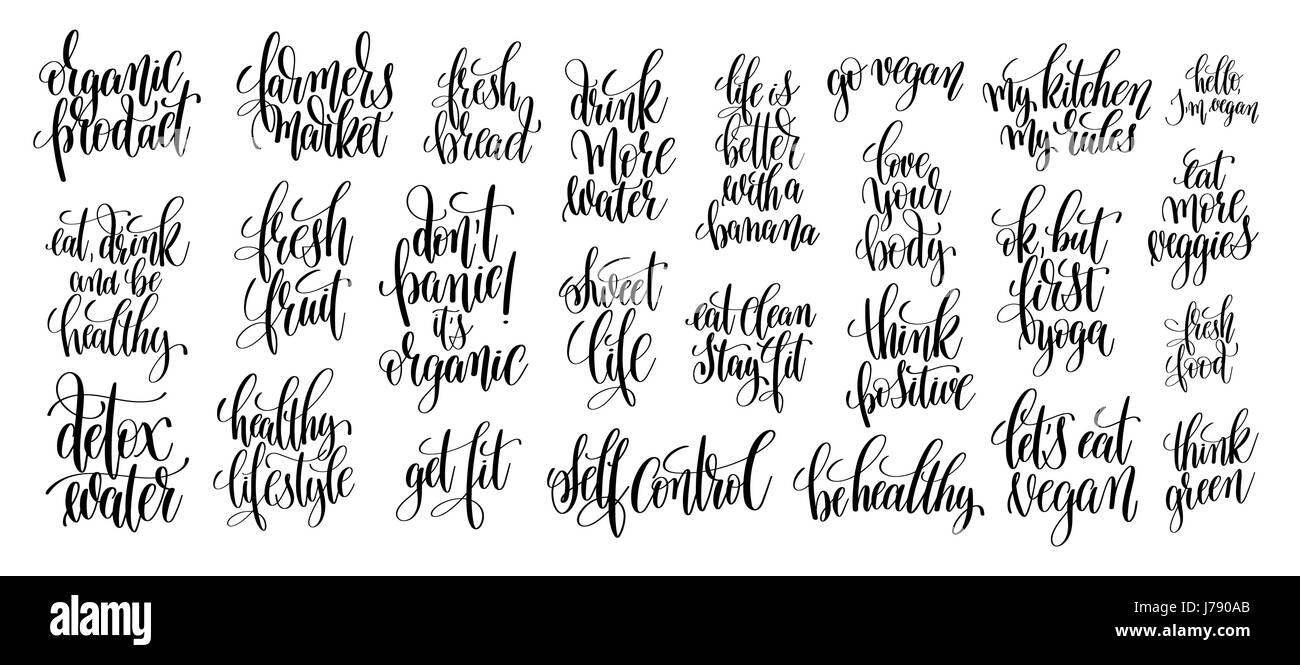 organic
prodact
farmers
market
fresh
bread
drink
more
water
life is
better
with a
banana
go vegan
my kitchen
my rules
hello,
I'm vegan
eat, drink
and be
healthy
fresh
fruit
don't
panic!
it's
organic
sweet
life
eat clean
stay fit
love
your
body
think
positive
ok, but
first
yoga
eat
more
veggies
fresh
food
detox
water
healthy
lifestyle
get fit
self control
be healthy
let's eat
vegan
think
green
alamy
Image ID: J790AB
www.alamy.com